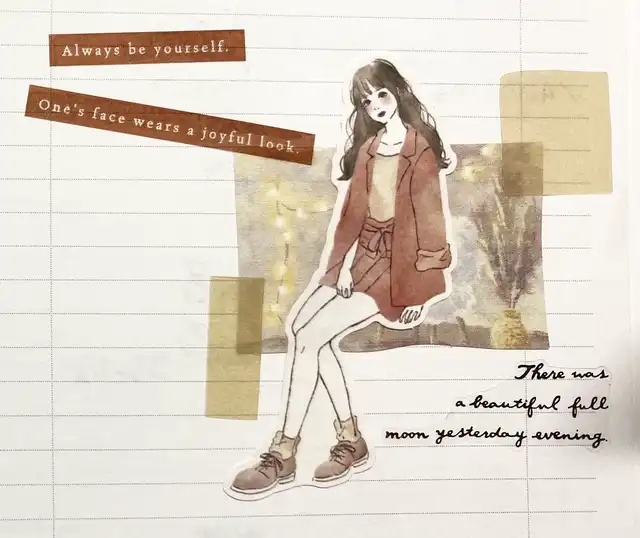 Always be yourself.
One's face wears a joyful look.
There was
a beautiful full
moon yesterday evening.